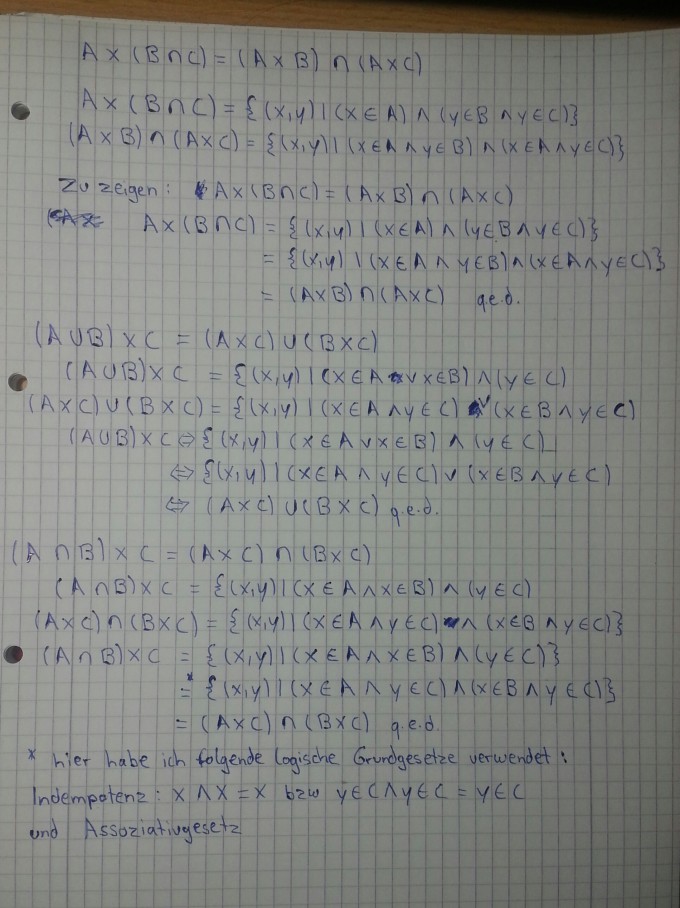 A × (B ∩ C) = (A × B) ∩ (A × C)
A × (B ∩ C) = {(x,y) | (x ∈ A) ∧ (y ∈ B ∧ y ∈ C)}
(A × B) ∩ (A × C) = {(x,y) | (x ∈ A ∧ y ∈ B) ∧ (x ∈ A ∧ y ∈ C)}
Zu zeigen: A × (B ∩ C) = (A × B) ∩ (A × C)
A × (B ∩ C) = {(x,y) | (x ∈ A) ∧ (y ∈ B ∧ y ∈ C)}
= {(x,y) | (x ∈ A ∧ y ∈ B) ∧ (x ∈ A ∧ y ∈ C)}
= (A × B) ∩ (A × C) q.e.d.
(A ∪ B) × C = (A × C) ∪ (B × C)
(A ∪ B) × C = {(x,y) | (x ∈ A ∨ x ∈ B) ∧ (y ∈ C)
(A × C) ∪ (B × C) = {(x,y) | (x ∈ A ∧ y ∈ C) ∨ (x ∈ B ∧ y ∈ C)
(A ∪ B) × C ⇔ {(x,y) | (x ∈ A ∨ x ∈ B) ∧ (y ∈ C)
⇔ {(x,y) | (x ∈ A ∧ y ∈ C) ∨ (x ∈ B ∧ y ∈ C)
⇔ (A × C) ∪ (B × C) q.e.d.
(A ∩ B) × C = (A × C) ∩ (B × C)
(A ∩ B) × C = {(x,y) | (x ∈ A ∧ x ∈ B) ∧ (y ∈ C)
(A × C) ∩ (B × C) = {(x,y) | (x ∈ A ∧ y ∈ C) ∧ (x ∈ B ∧ y ∈ C)}
(A ∩ B) × C = {(x,y) | (x ∈ A ∧ x ∈ B) ∧ (y ∈ C)}
=* {(x,y) | (x ∈ A ∧ y ∈ C) ∧ (x ∈ B ∧ y ∈ C)}
= (A × C) ∩ (B × C) q.e.d.
* hier habe ich folgende logische Grundgesetze verwendet:
Indempotenz: x ∧ x = x bzw y ∈ C ∧ y ∈ C = y ∈ C
und Assoziativgesetz